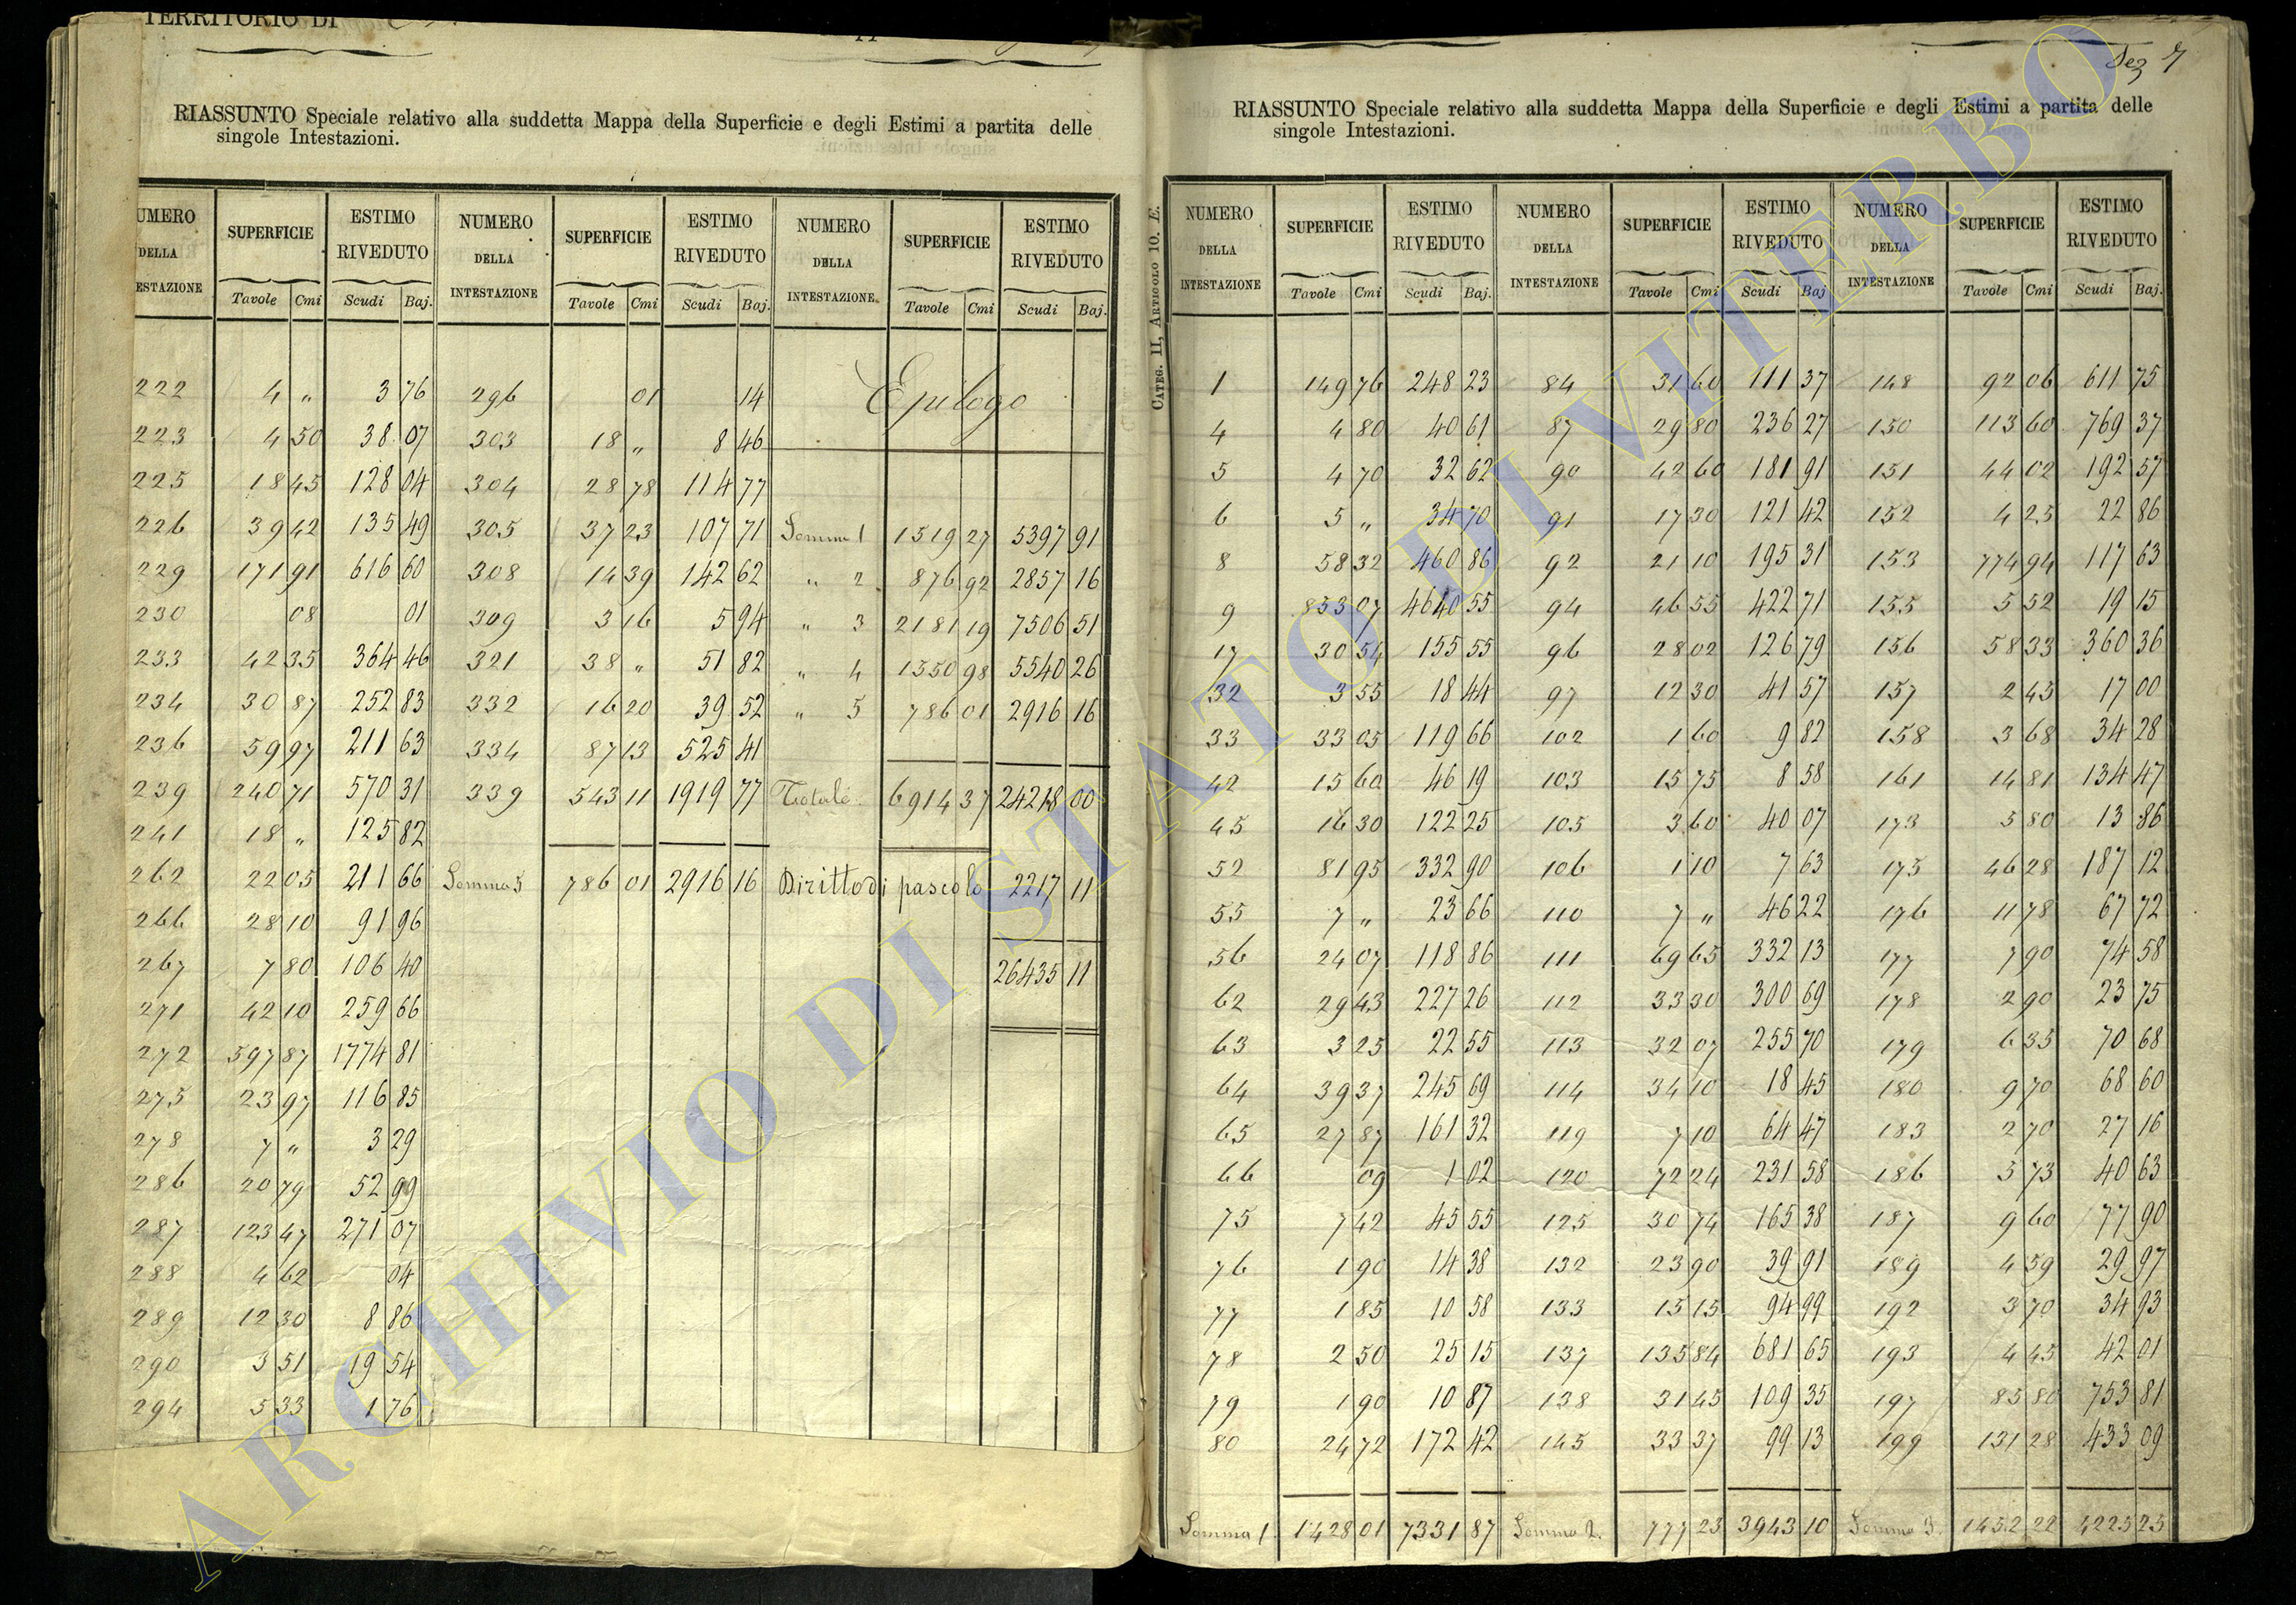 TERRITORIO DI
RIASSUNTO Speciale relativo alla suddetta Mappa della Superficie e degli Estimi a partita delle
singole Intestazioni.
UMERO DELLA ESTAZIONE | SUPERFICIE Tavole Cmi | ESTIMO RIVEDUTO Scudi Baj. | NUMERO DELLA INTESTAZIONE | SUPERFICIE Tavole Cmi | ESTIMO RIVEDUTO Scudi Baj. | NUMERO DELLA INTESTAZIONE | SUPERFICIE Tavole Cmi | ESTIMO RIVEDUTO Scudi Baj.
222 4 „ 3 76 296 01 14 Epilogo
223 4 50 38 07 303 18 „ 8 46
225 18 45 128 04 304 28 78 114 77
226 39 42 135 49 305 37 23 107 71 Somma 1 1519 27 5397 91
229 171 91 616 60 308 14 39 142 62 „ 2 876 92 2857 16
230 08 01 309 3 16 5 94 „ 3 2181 19 7506 51
233 42 35 364 46 321 38 „ 51 82 „ 4 1550 98 5540 26
234 30 87 252 83 332 16 20 39 52 „ 5 786 01 2916 16
236 59 97 211 63 334 87 13 525 41
239 240 71 570 31 339 543 11 1919 77 Totale 6914 37 24218 00
241 18 „ 125 82
262 22 05 211 66 Somma 5 786 01 2916 16 Diritto di pascolo 2217 11
266 28 10 91 96
267 7 80 106 40 26435 11
271 42 10 259 66
272 597 87 1774 81
275 23 97 116 85
278 7 „ 3 29
286 20 79 52 99
287 123 47 271 07
288 4 62 04
289 12 30 8 86
290 3 51 19 54
294 5 33 1 76
Sez 7
RIASSUNTO Speciale relativo alla suddetta Mappa della Superficie e degli Estimi a partita delle
singole Intestazioni.
CATEG. II, ARTICOLO 10. E.
NUMERO DELLA INTESTAZIONE | SUPERFICIE Tavole Cmi | ESTIMO RIVEDUTO Scudi Baj. | NUMERO DELLA INTESTAZIONE | SUPERFICIE Tavole Cmi | ESTIMO RIVEDUTO Scudi Baj | NUMERO DELLA INTESTAZIONE | SUPERFICIE Tavole Cmi | ESTIMO RIVEDUTO Scudi Baj.
1 149 76 248 23 84 31 60 111 37 148 92 06 611 75
4 4 80 40 61 87 29 80 236 27 150 113 60 769 37
5 4 70 32 62 90 42 60 181 91 151 44 02 192 57
6 5 „ 34 70 91 17 30 121 42 152 4 25 22 86
8 58 32 460 86 92 21 10 195 31 153 774 94 117 63
9 853 07 4640 55 94 46 55 422 71 155 5 52 19 15
17 30 54 155 55 96 28 02 126 79 156 58 33 360 36
32 3 55 18 44 97 12 30 41 57 157 2 45 17 00
33 33 05 119 66 102 1 60 9 82 158 3 68 34 28
42 15 60 46 19 103 15 75 8 58 161 14 81 134 47
45 16 30 122 25 105 3 60 40 07 173 5 80 13 86
52 81 95 332 90 106 1 10 7 63 175 46 28 187 12
55 7 „ 23 66 110 7 „ 46 22 176 11 78 67 72
56 24 07 118 86 111 69 65 332 13 177 7 90 74 58
62 29 43 227 26 112 33 30 300 69 178 2 90 23 75
63 3 25 22 55 113 32 07 255 70 179 6 35 70 68
64 39 37 245 69 114 34 10 18 45 180 9 70 68 60
65 27 87 161 32 119 7 10 64 47 183 2 70 27 16
66 09 1 02 120 72 24 231 58 186 5 73 40 63
75 7 42 45 55 125 30 74 165 38 187 9 60 77 90
76 1 90 14 38 132 23 90 39 91 189 4 59 29 97
77 1 85 10 58 133 15 15 94 99 192 3 70 34 93
78 2 50 25 15 137 135 84 681 65 193 4 45 42 01
79 1 90 10 87 138 31 45 109 35 197 85 80 753 81
80 24 72 172 42 145 33 37 99 13 199 131 28 433 09
Somma 1. 1428 01 7331 87 Somma 2. 777 23 3943 10 Somma 3. 1452 22 4225 25
ARCHIVIO DI STATO DI VITERBO